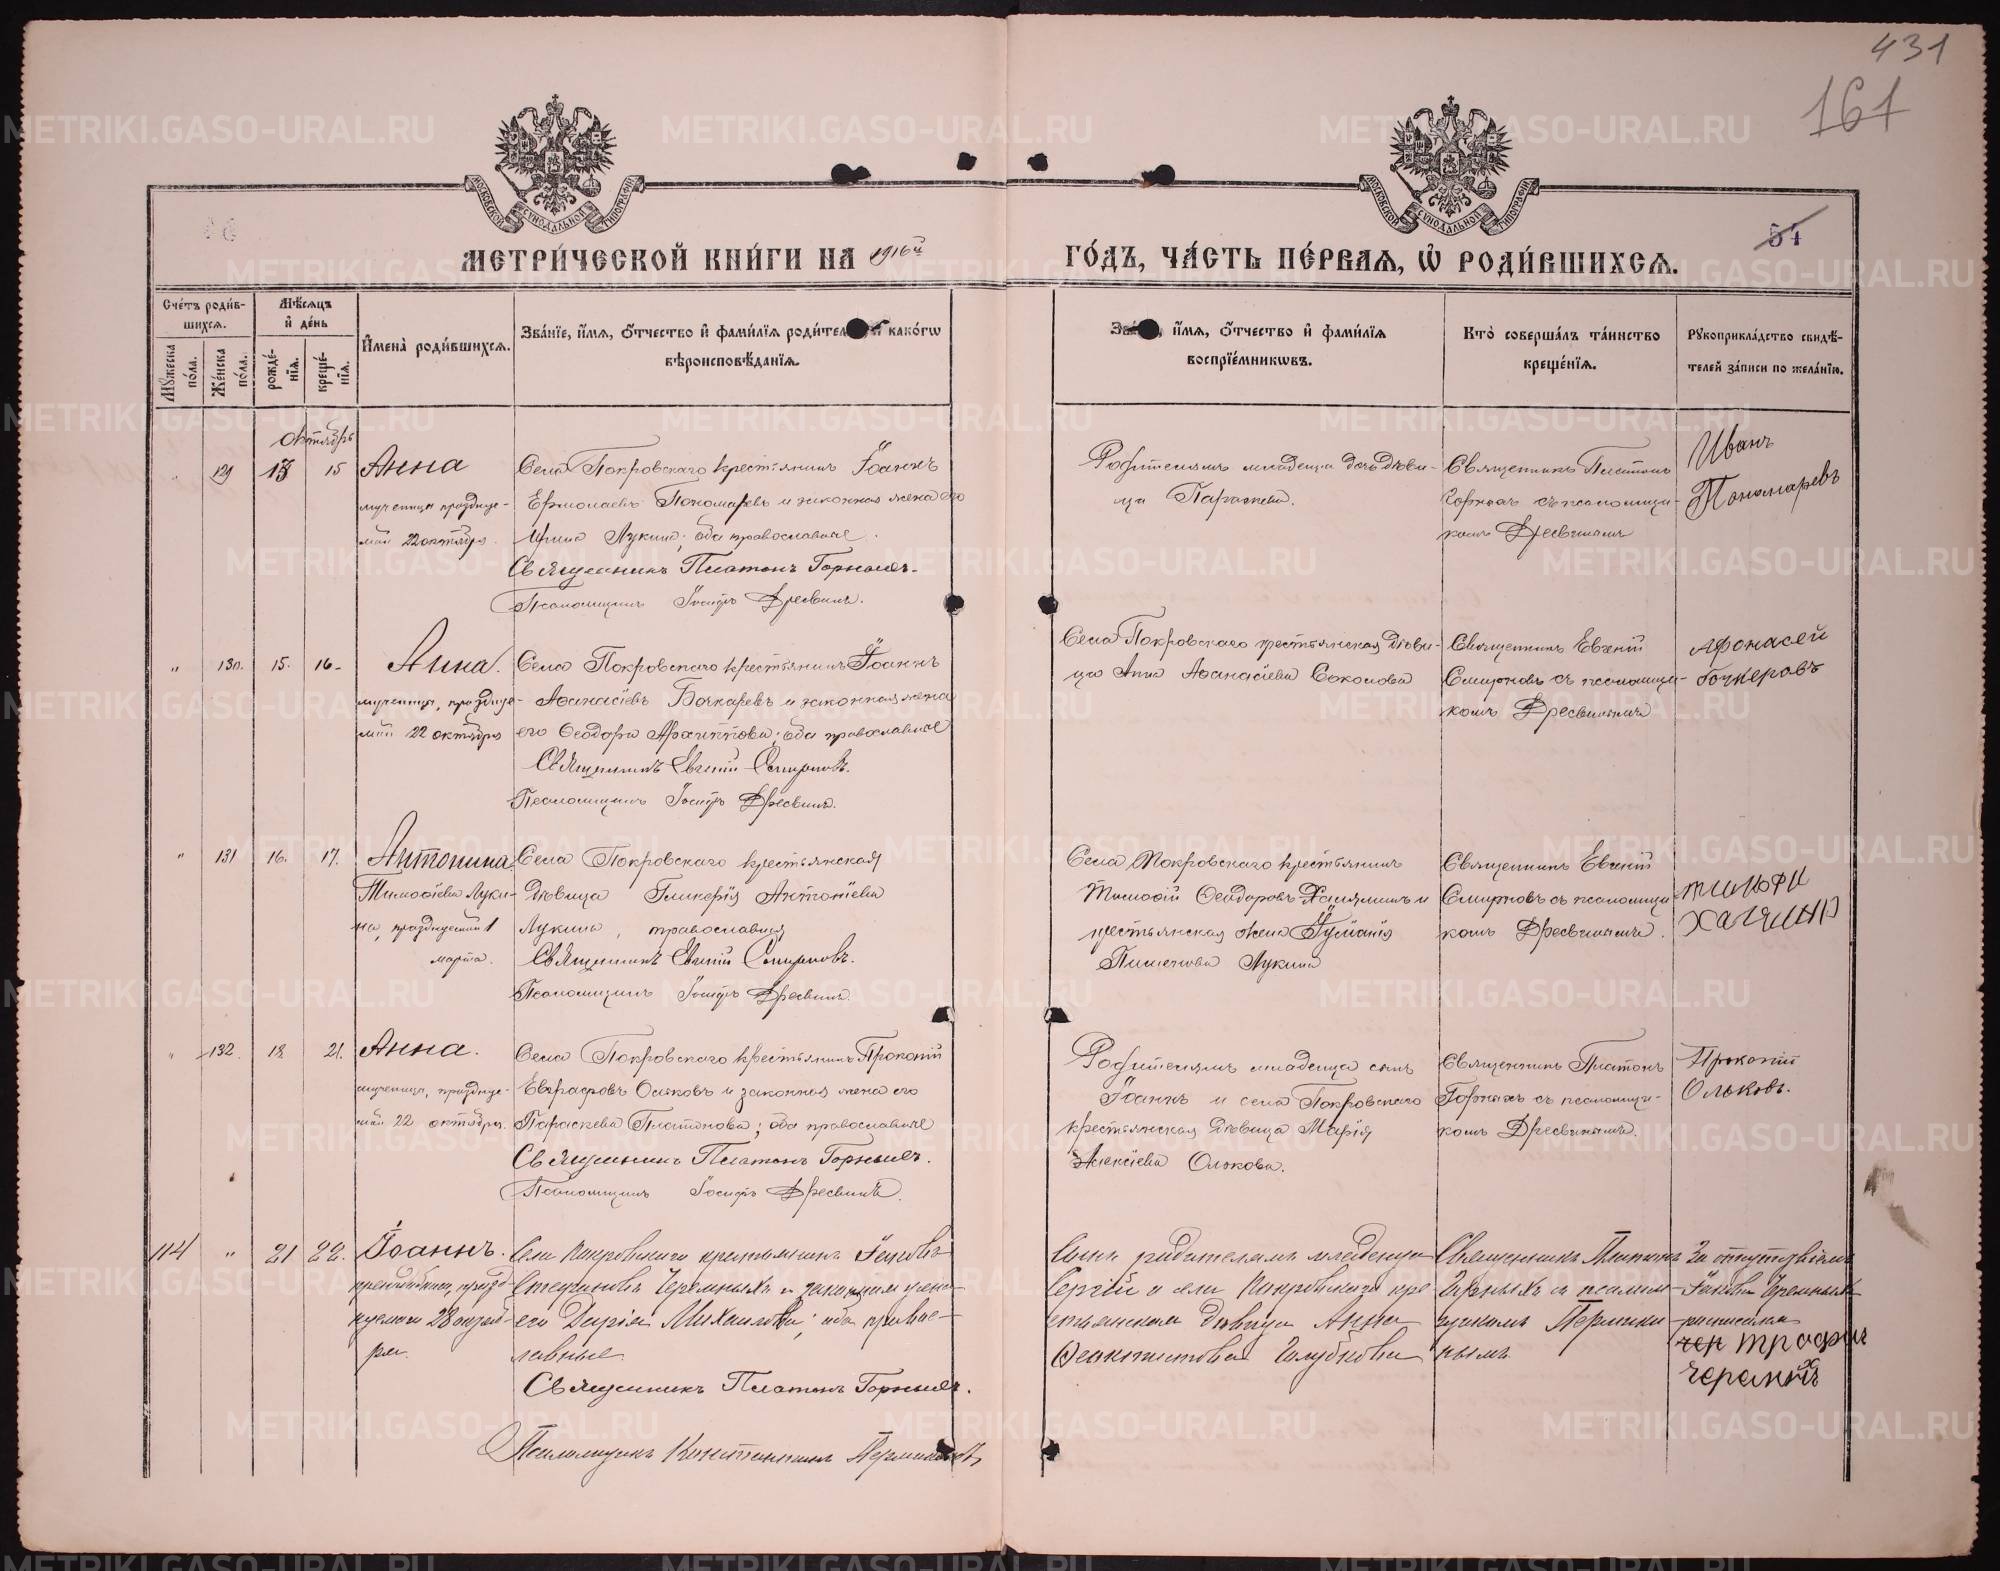 431
161
МОСКОВСКОЙ СѴНОДАЛЬНОЙ ТИПОГРАФІИ
МОСКОВСКОЙ СѴНОДАЛЬНОЙ ТИПОГРАФІИ
54
МЕТРИ́ЧЕСКОЙ КНИ́ГИ НА 1916й ГО́ДЪ, ЧА́СТЬ ПЕ́РВАЯ, Ѡ РОДИ́ВШИХСЯ.
Сче́тъ роди́в-
шихся.
Мꙋжеска по́ла.
Же́нска по́ла.
Мѣ́сяцъ
и҆ де́нь
рожде́-
нїя.
креще́-
нїя.
И҆мена̀ роди́вшихся.
Зва́нїе, и҆́мя, ѻ҆́тчество и҆ фами́лїя родител и҆ како́гѡ
вѣроисповѣ́данїя.
и҆́мя, ѻ҆́тчество и҆ фами́лїя
воспрїе́мникѡвъ.
Кто̀ соверша́лъ та́инство
креще́нїя.
Рꙋкоприкла́дство свидѣ́-
телей за́писи по жела́нїю.
октябрь
" 129 13 15 Анна
мученица празднуе-
мой 22 октября.
Села Покровскаго крестьянинъ Іоаннъ
Ермолаевъ Пономаревъ и законная жена его
Ирина Лукина; оба православные.
Священникъ Платонъ Горныхъ.
Псаломщикъ Іосифъ Дресвинъ.
Родителямъ младенца дочь дѣви-
ца Параскева.
Священникъ Платонъ
Горныхъ съ псаломщи-
комъ Дресвинымъ
Иванъ
Пономаревъ
" 130. 15. 16. Анна.
мученица, празднуе-
мой 22 октября
Села Покровскаго крестьянинъ Іоаннъ
Аѳанасіевъ Бочкаревъ и законная жена
его Ѳеодора; оба православные
Священникъ Евгеній Смирновъ.
Псаломщикъ Іосифъ Дресвинъ.
Села Покровскаго крестьянская дѣви-
ца Анна Аѳанасіева Соколова
Священникъ Евгеній
Смирновъ съ псаломщи-
комъ Дресвинымъ
Афонасей
Бочкеровъ
" 131 16. 17. Антонина
Тимоѳіева Луки-
на, празднуемой 1
марта.
Села Покровскаго крестьянская
дѣвица Гликерія Антоніева
Лукина, православная
Священникъ Евгеній Смирновъ.
Псаломщикъ Іосифъ Дресвинъ.
Села Покровскаго крестьянинъ
Тимоѳій Ѳеодоровъ и
крестьянская жена Іуліанія
Лукина
Священникъ Евгеній
Смирновъ съ псаломщи-
комъ Дресвинымъ.
" 132. 18. 21. Анна.
мученица, празднуе-
мой 22 октября.
Села Покровскаго крестьянинъ Прокопій
Евграфовъ Ольковъ и законная жена его
Параскева Платонова; оба православные
Священникъ Платонъ Горныхъ.
Псаломщикъ Іосифъ Дресвинъ.
Родителямъ младенца сынъ
Іоаннъ и села Покровскаго
крестьянская дѣвица Марія
Алексіева Олькова.
Священникъ Платонъ
Горныхъ съ псаломщи-
комъ Дресвинымъ.
Прокопій
Ольковъ.
114 " 21 22. Іоаннъ.
преподобнаго, празд-
нуемаго 28
Села Покровскаго крестьянинъ Іаковъ
Стефановъ Черемныхъ и законная жена
его Дарія Михаилова; оба право-
славные.
Священникъ Платонъ Горныхъ.
Псаломщикъ Константинъ Перминовъ
Сынъ родителямъ младенца
Сергій и села Покровскаго кре-
стьянская дѣвица Анна
Ѳеоктистова Голубкова
Священникъ Платонъ
Горныхъ съ псалом-
щикомъ Пермино-
вымъ.
За отсутствіемъ
Іакова Черемныхъ
росписался